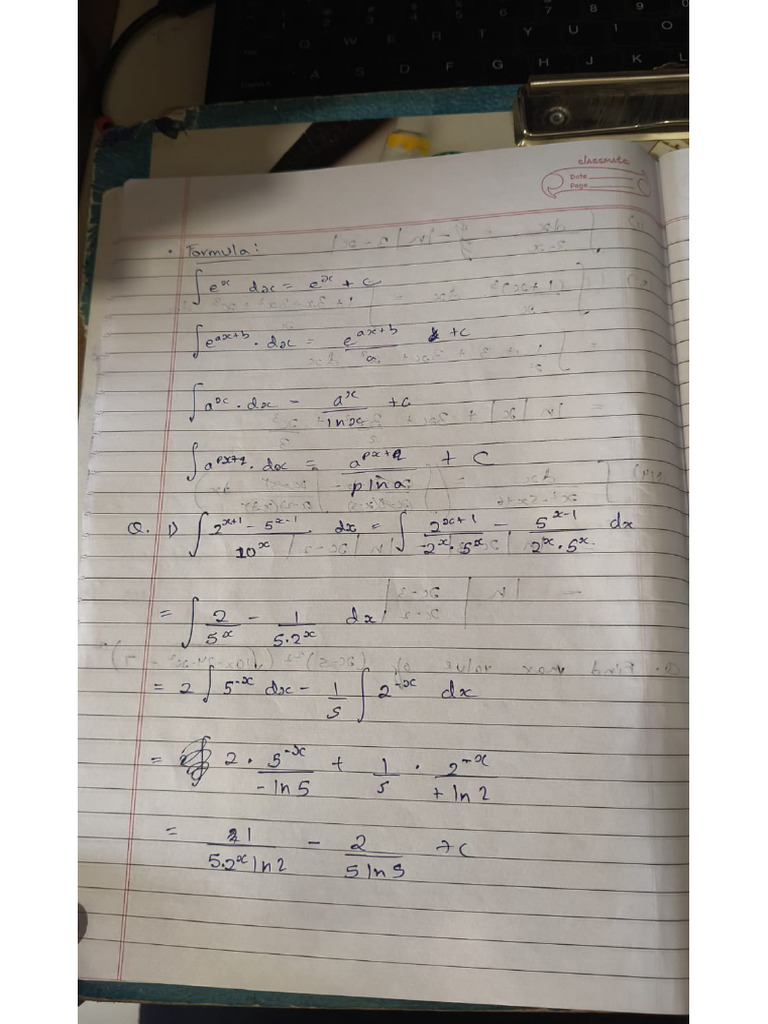 Q W E R T Y U I O
A S D F G H J K L
classmate
Date
Page
• Formula:
∫ e^x dx = e^x + C
∫ e^(ax+b) · dx = e^(ax+b)/a + C
∫ a^x · dx = a^x/lnx + C
∫ a^(px+q) · dx = a^(px+q)/(p ln a) + C
Q. 1) ∫ (2^(x+1) - 5^(x-1))/10^x dx = ∫ 2^(x+1)/(2^x · 5^x) - 5^(x-1)/(2^x · 5^x) dx
= ∫ 2/5^x - 1/(5·2^x) dx
= 2 ∫ 5^(-x) dx - 1/5 ∫ 2^(-x) dx
= 2 · 5^(-x)/(-ln 5) + 1/5 · 2^(-x)/(+ln 2)
= 1/(5·2^x ln 2) - 2/(5 ln 5) + C